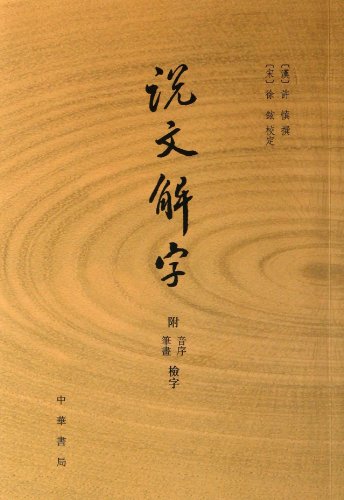 〔漢〕許 慎 撰
〔宋〕徐 鉉 校定
说文解字
附 音序 檢字
筆畫
中華書局